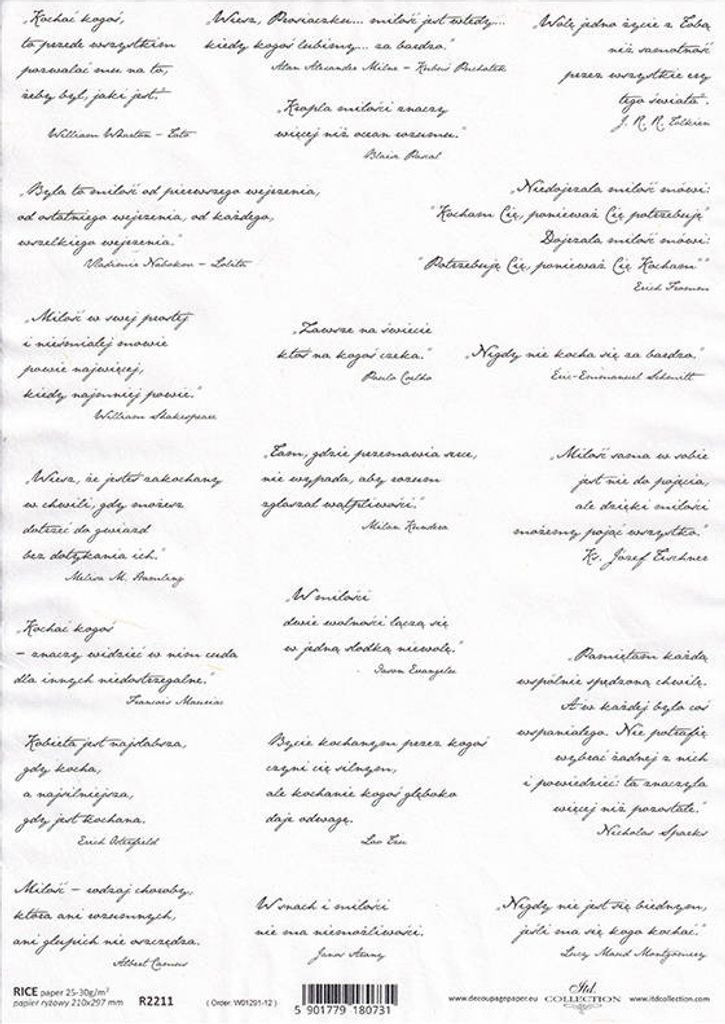 „Kochać kogoś,
to przede wszystkim
pozwalać mu na to,
żeby był, jaki jest."
William Wharton - Tato
„Wiesz, Prosiaczku... miłość jest wtedy...
kiedy kogoś lubimy... za bardzo."
Alan Alexander Milne - Kubuś Puchatek
„Kropla miłości znaczy
więcej niż ocean rozumu."
Blaise Pascal
„Wolę jedno życie z Tobą
niż samotność
przez wszystkie ery
tego świata".
J. R. R. Tolkien
„Była to miłość od pierwszego wejrzenia,
od ostatniego wejrzenia, od każdego,
wszelkiego wejrzenia."
Vladimir Nabokov - Lolita
„Niedojrzała miłość mówi:
"Kocham Cię, ponieważ Cię potrzebuję"
Dojrzała miłość mówi:
"Potrzebuję Cię, ponieważ Cię Kocham""
Erich Fromm
„Miłość w swej prostej
i nieśmiałej mowie
powie najwięcej,
kiedy najmniej powie."
William Shakespeare
„Zawsze na świecie
ktoś na kogoś czeka."
Paulo Coelho
„Nigdy nie kocha się za bardzo."
Eric-Emmanuel Schmitt
„Wiesz, że jesteś zakochany
w chwili, gdy możesz
dotrzeć do gwiazd
bez dotykania ich."
Melisa M. Hamling
„Tam, gdzie przemawia serce,
nie wypada, aby rozum
zgłaszał wątpliwości."
Milan Kundera
„Miłość sama w sobie
jest nie do pojęcia,
ale dzięki miłości
możemy pojąć wszystko."
Ks. Józef Tischner
„Kochać kogoś
- znaczy widzieć w nim cuda
dla innych niedostrzegalne."
Francois Mauriac
„W miłości
dwie wolności łączą się
w jedną słodką niewolę."
Jason Evangelu
„Pamiętam każdą
wspólnie spędzoną chwilę.
A w każdej było coś
wspaniałego. Nie potrafię
wybrać żadnej z nich
i powiedzieć: ta znaczyła
więcej niż pozostałe."
Nicholas Sparks
Kobieta jest najsłabsza,
gdy kocha,
a najsilniejsza,
gdy jest kochana.
Erich Osterfield
Bycie kochanym przez kogoś
czyni cię silnym,
ale kochanie kogoś głęboko
daje odwagę.
Lao Tzu
Miłość - rodzaj choroby,
która ani rozumnych,
ani głupich nie oszczędza.
Albert Camus
W snach i miłości
nie ma niemożliwości.
Janos Arany
„Nigdy nie jest się biednym,
jeśli ma się kogo kochać."
Lucy Maud Montgomery
RICE paper 25-30g/m²
papier ryżowy 210x297 mm R2211
( Order: W01291-12 )
5 901779 180731
www.decoupagepaper.eu
Itd.
COLLECTION
www.itdcollection.com